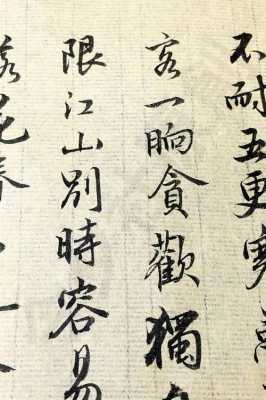 不耐五更寒
客一晌貪歡獨
限江山別時容易
落花春